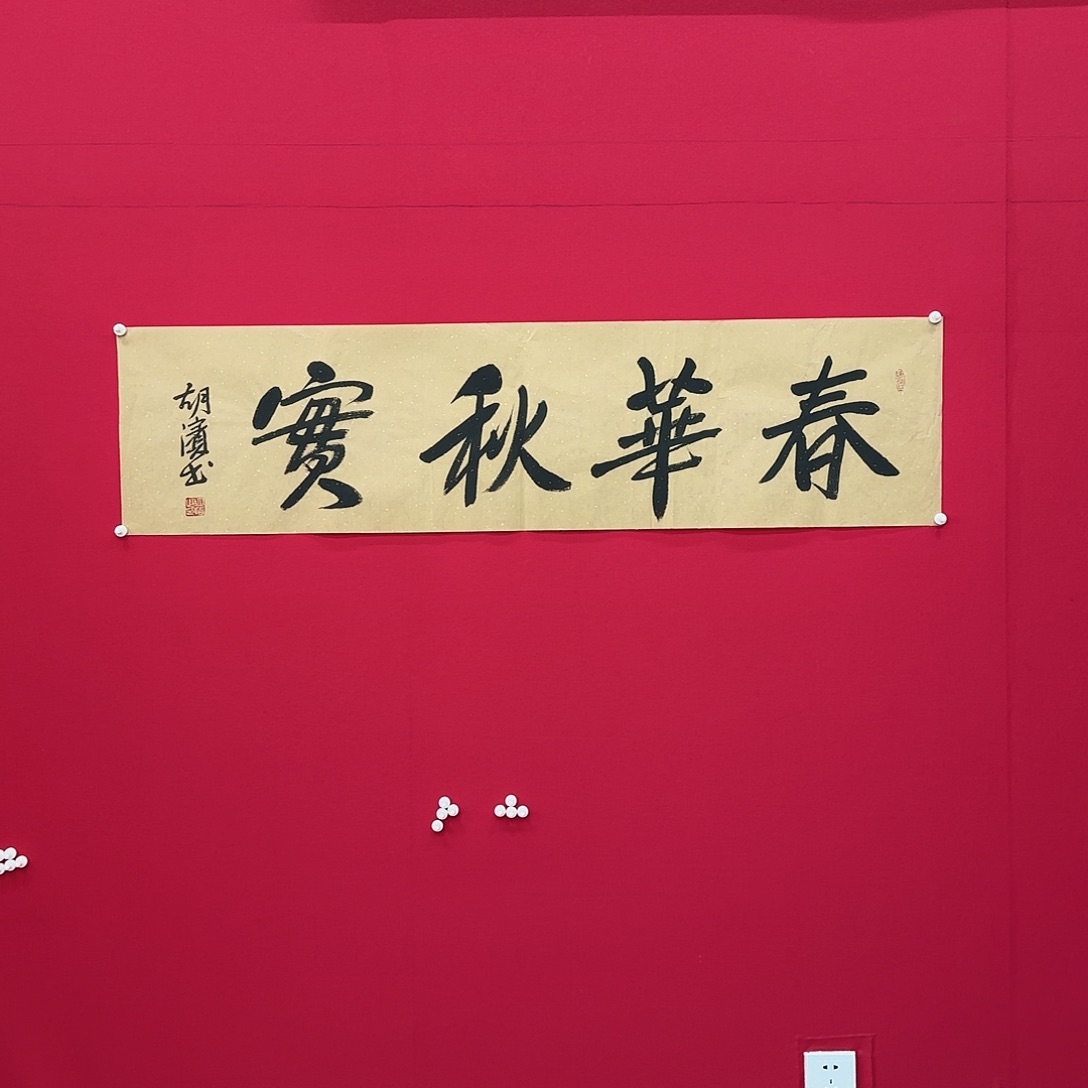 春華秋實
胡濱书